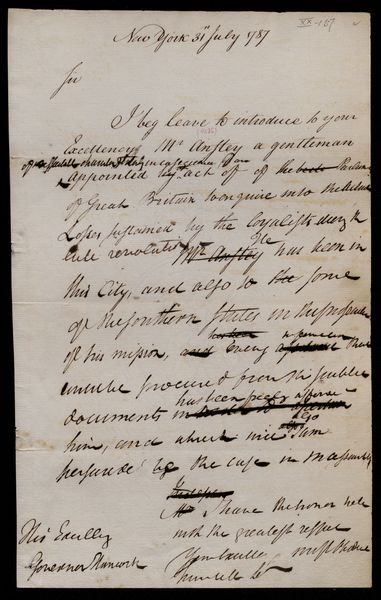 XX-167
New York 31st July 1787
Sir
I beg leave to introduce to your
Excellency Mr Anstey a gentleman
appointed by act of the Parliam
of Great Britain to enquire into the actual
Losses sustained by the loyalists during the
late revolution Mr Anstey He has been in
this City, and also to the some
of the southern States in the prosecution
of his mission, and every
could be procured from the public
documents has been freely
him, and which will also I am
persuaded be the case in Massachu
I have the honor
with the greatest respect
Your Excelle most Obedient
humble
His Excelly
Governor Hancock